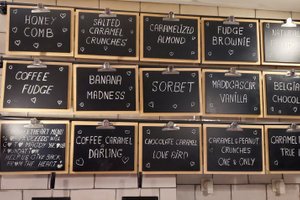 HONEY
COMB
SALTED
CARAMEL
CRUNCHES
CARAMELIZED
ALMOND
FUDGE
BROWNIE
COFFEE
FUDGE
BANANA
MADNESS
SORBET
MADAGASCAR
VANILLA
BELGIA
CHOCOL
COFFEE CARAMEL
DARLING
CHOCOLATE CARAMEL
LOVE BIRD
CARAMEL & PEANUT
CRUNCHES
ONE & ONLY
CARAMEL
TRUE